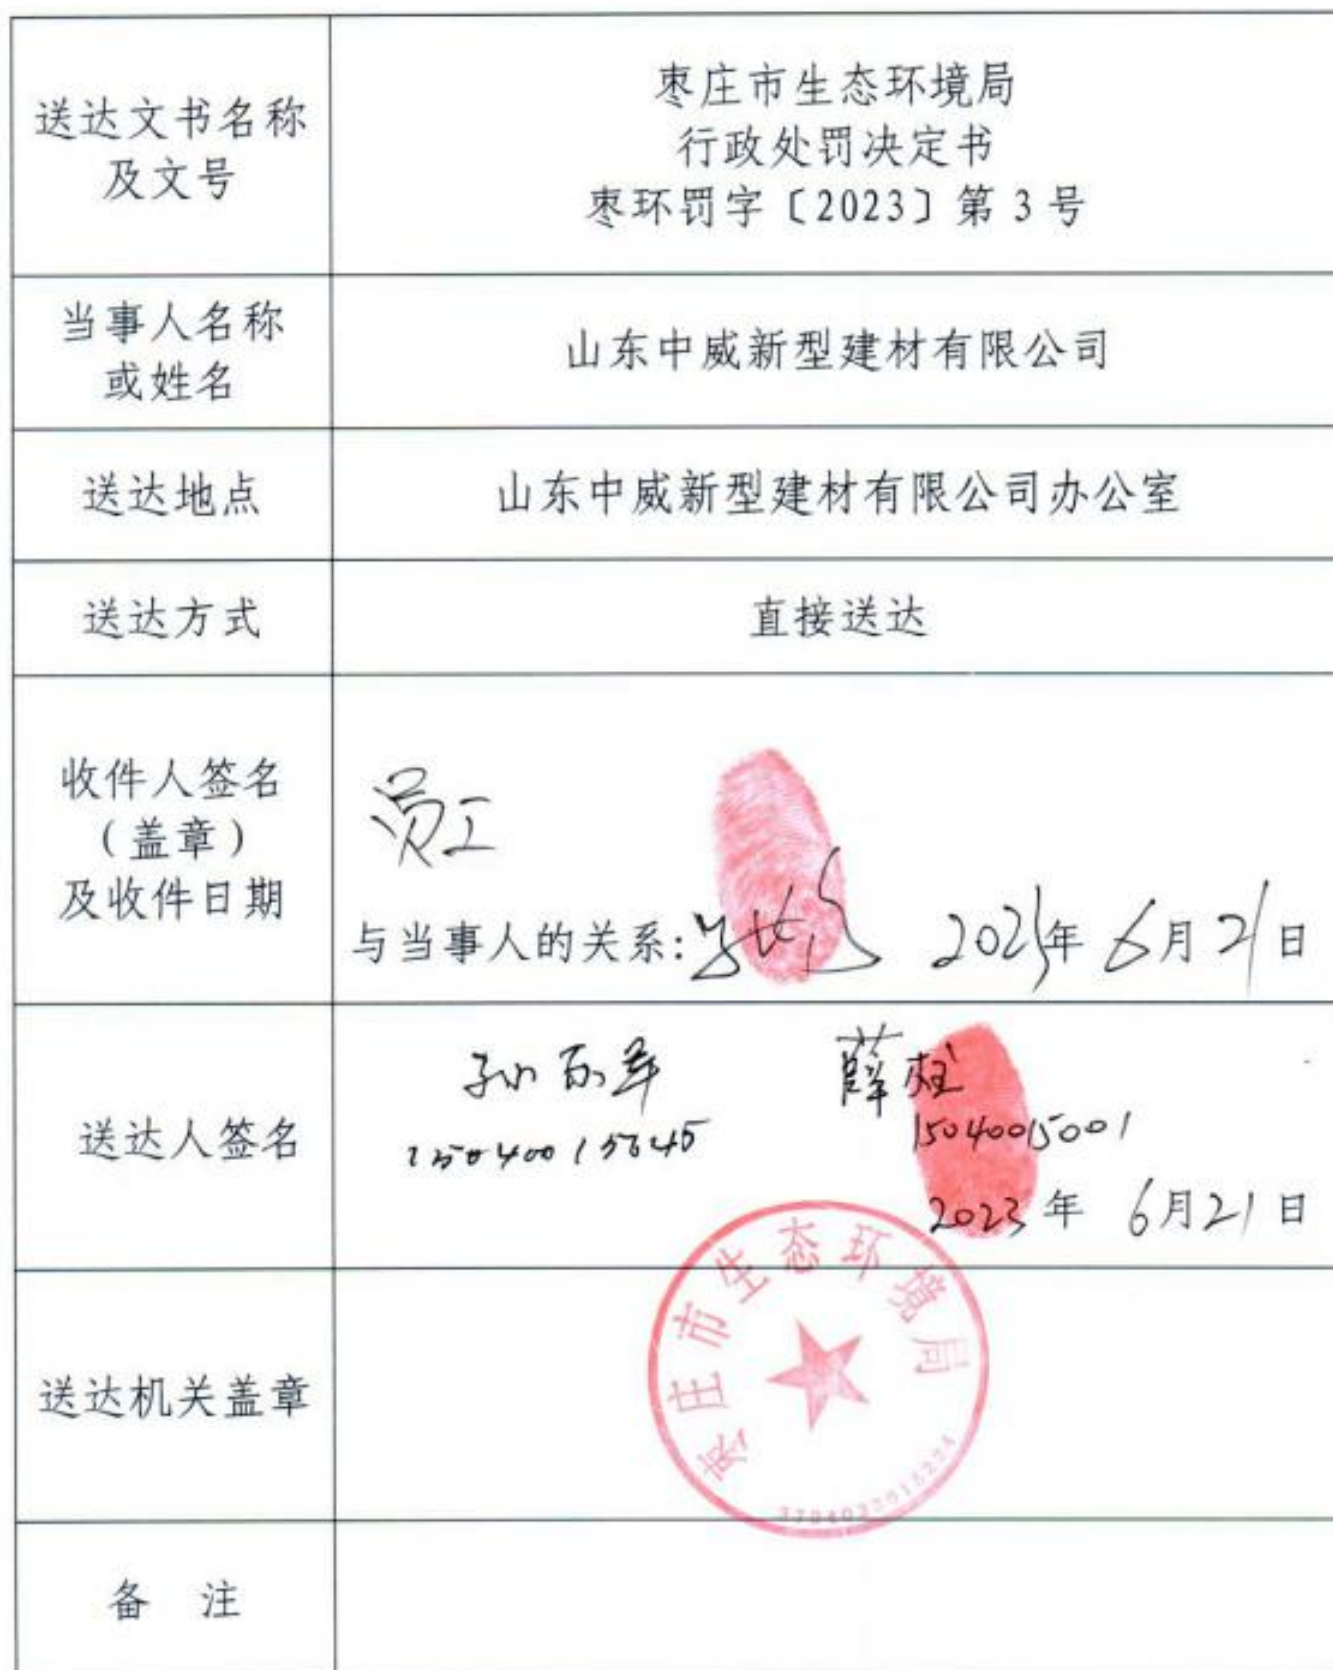 送达文书名称
及文号
枣庄市生态环境局
行政处罚决定书
枣环罚字〔2023〕第3号
当事人名称
或姓名
山东中威新型建材有限公司
送达地点
山东中威新型建材有限公司办公室
送达方式
直接送达
收件人签名
（盖章）
及收件日期
员工
与当事人的关系: 2023年6月21日
送达人签名
孙 薛柱
15040015001
2023年 6月21日
送达机关盖章
枣庄市生态环境局
备 注